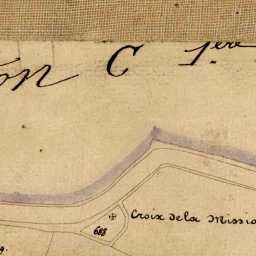 on C 1ère
Croix de la Missio
688
9.